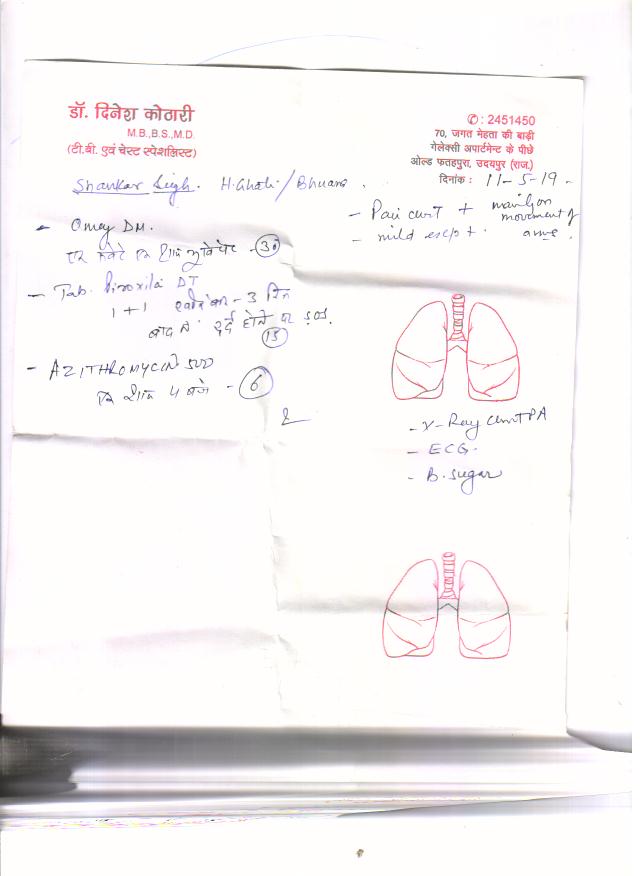 डॉ. दिनेश कोठारी
M.B.,B.S.,M.D.
(टी.बी. एवं चेस्ट स्पेशलिस्ट)
✆ : 2451450
70, जगत मेहता की बाड़ी
गेलेक्सी अपार्टमेन्ट के पीछे
ओल्ड फतहपुरा, उदयपुर (राज.)
दिनांक : 11-5-19
Shankar Singh. H. Ghati / Bhuana
- Pain chest + mainly on
movement of
- mild
- Omez DM.
एक 30
- Tab. DT
1 + 1 - 3 दिन
बाद में दर्द होने पर S.O.S.
15
- AZITHROMYCIN 500
शाम 4 बजे - 6
- X-Ray Chest PA
- ECG.
- B. Sugar